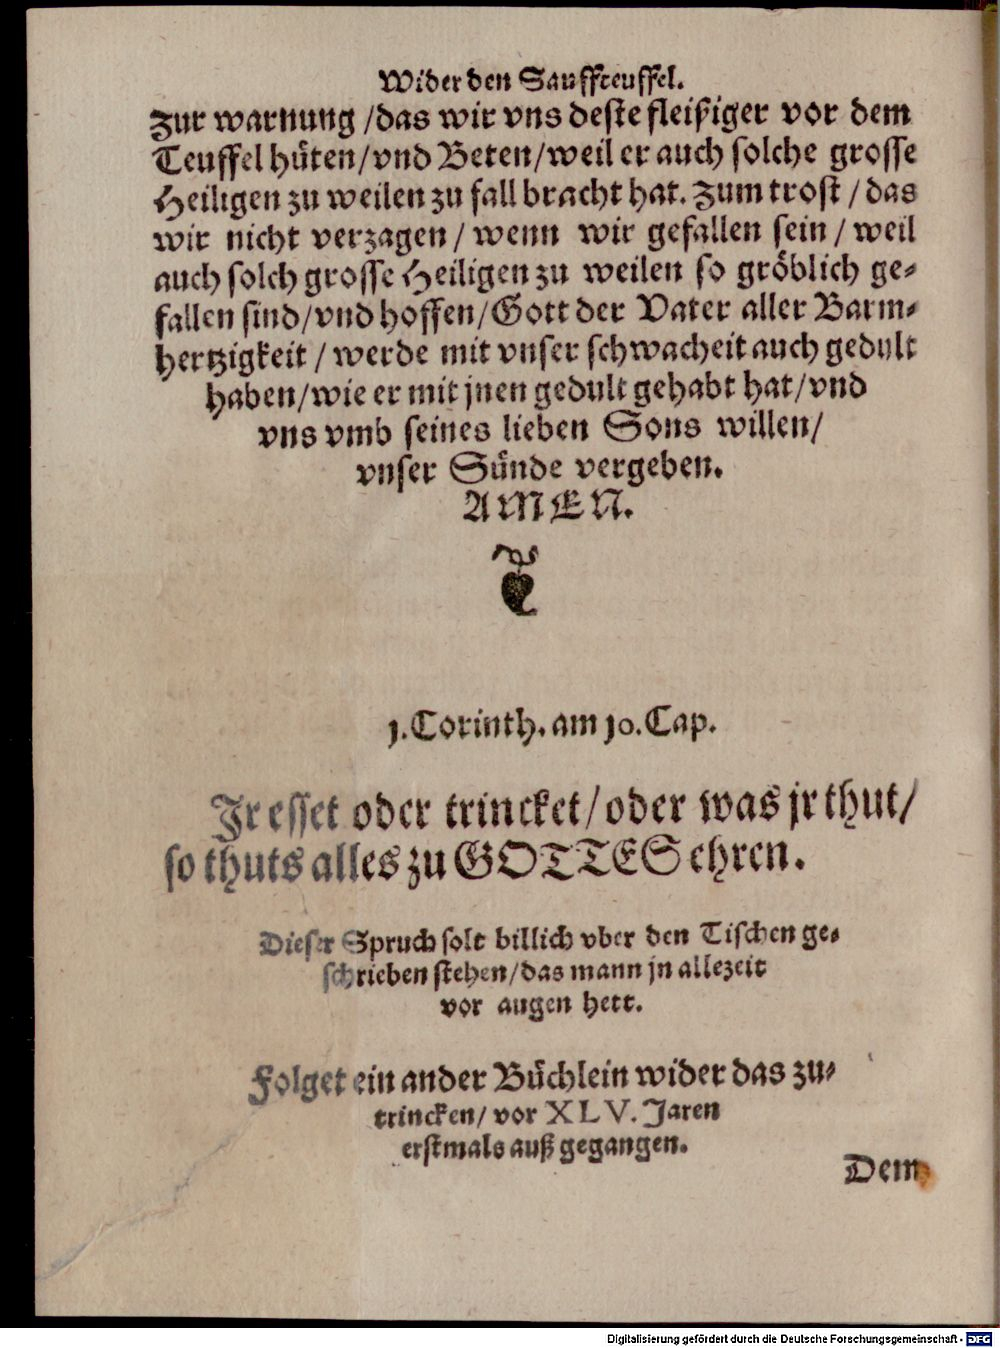 Wider den Sauffteuffel.
Zur warnung /das wir vns deste fleißiger vor dem
Teuffel hüten/vnd Beten/weil er auch solche grosse
Heiligen zu weilen zu fall bracht hat. Zum trost / das
wir nicht verzagen / wenn wir gefallen sein / weil
auch solch grosse Heiligen zu weilen so gröblich ge-
fallen sind/vnd hoffen/Gott der Vater aller Barm-
hertzigkeit / werde mit vnser schwacheit auch gedult
haben/wie er mit jnen gedult gehabt hat/vnd
vns vmb seines lieben Sons willen/
vnser Sünde vergeben.
AMEN.
1.Corinth. am 10. Cap.
Jr esset oder trincket/oder was jr thut/
so thuts alles zu GOTTES ehren.
Dieser Spruch solt billich vber den Tischen ge-
schrieben stehen/das mann jn allezeit
vor augen hett.
Folget ein ander Büchlein wider das zu-
trincken/ vor XLV. Jaren
erstmals auß gegangen.
Dem
Digitalisierung gefördert durch die Deutsche Forschungsgemeinschaft - DFG